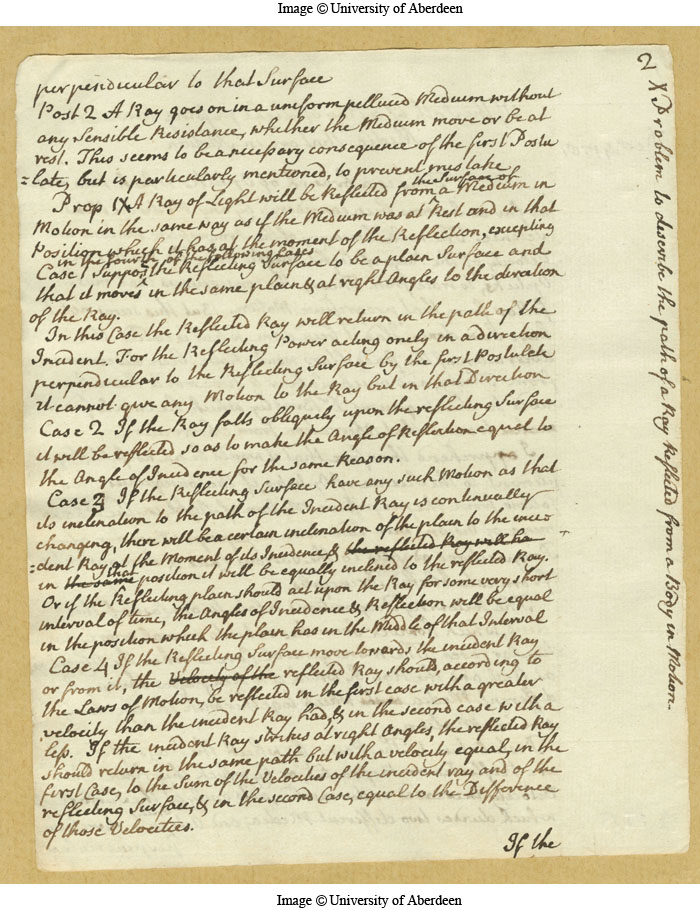 Image © University of Aberdeen
perpendicular to that Surface
Post 2 A Ray goes on in a uniform pellucid Medium without
any Sensible Resistance, whether the Medium move or be at
rest. This seems to be a necessary consequence of the first Postu
=late, but is particularly mentioned, to prevent mistake
the Surface of
Prop 1X A Ray of Light will be Reflected from a Medium in
Motion in the same way as if the Medium was at Rest and in that
Position which it has at the moment of the Reflection, excepting
in the fourth of the following Cases
Case 1 Suppose the Reflecting Surface to be a plain Surface and
that it moves in the same plain & at right Angles to the direction
of the Ray.
In this Case the Reflected Ray will return in the path of the
Incident. For the Reflecting Power acting onely in a direction
perpendicular to the Reflecting Surface by the first Postulate
it cannot give any Motion to the Ray but in that Direction
Case 2 If the Ray falls obliquely upon the reflecting Surface
it will be reflected so as to make the Angle of Reflection equal to
the Angle of Incidence for the same Reason.
Case 3 If the Reflecting Surface have any such Motion as that
its inclination to the path of the Incident Ray is continually
changing, there will be a certain inclination of the plain to the inci=
=dent Ray at the Moment of its Incidence, & the reflected Ray will ha
that
in the same position it will be equally inclined to the reflected Ray.
Or if the Reflecting plain should act upon the Ray for some very short
interval of time, the Angles of Incidence & Reflection will be equal
in the position which the plain has in the Middle of that Interval
Case 4 If the Reflecting Surface move towards the incident Ray
or from it, the Velocity of the reflected Ray should, according to
the Laws of Motion, be reflected in the first case with a greater
velocity than the incident Ray had, & in the second case with a
less. If the incident Ray strikes at right Angles, the reflected Ray
should return in the same path but with a velocity equal, in the
first Case, to the Sum of the Velocities of the incident ray and of the
reflecting Surface, & in the second Case, equal to the Difference
of those Velocities.
If the
2
X Problem to describe the path of a Ray Reflected from a Body in Motion.
Image © University of Aberdeen